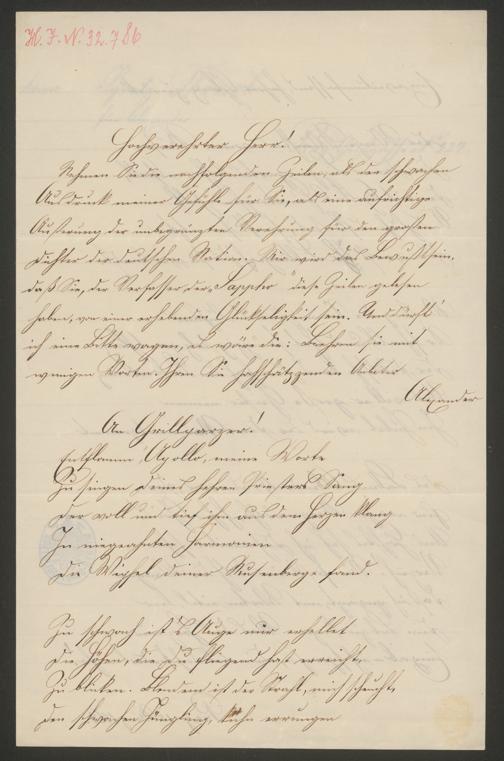 H. I. N. 32.786
Hochverehrter Herr!
Nehmen Sie die nachfolgenden Zeilen, als den schwachen
Ausdruck meiner Gefühle für Sie, als eine aufrichtige
Äußerung der unbegränzten Verehrung für den großen
Dichter der deutschen Nation. Mir wird das Bewußtsein,
daß Sie, der Verfasser der „Sappho“ diese Zeilen gelesen
haben, von einer erhebenden Glückseligkeit sein. Und dürft'
ich eine Bitte wagen, es wäre die: Beehren sie mit
wenigen Worten Ihren Sie hochschätzenden Anbeter
Alexander
An Grillparzer!
Entflamm, Apollo, meine Worte
Zu singen deines hehren Priesters Sang
Der voll und tief ihm aus dem Herzen klang
In niegeahnten Harmonien
Die Wipfel deiner Musenberge fand.
Zu schwach ist's Auge nur erhellet
Die Höhen, die du fliegend hast erreicht,
Zu blicken. Blendend ist der Strahl, mich scheucht,
Den schwachen Jüngling, kühn errungen